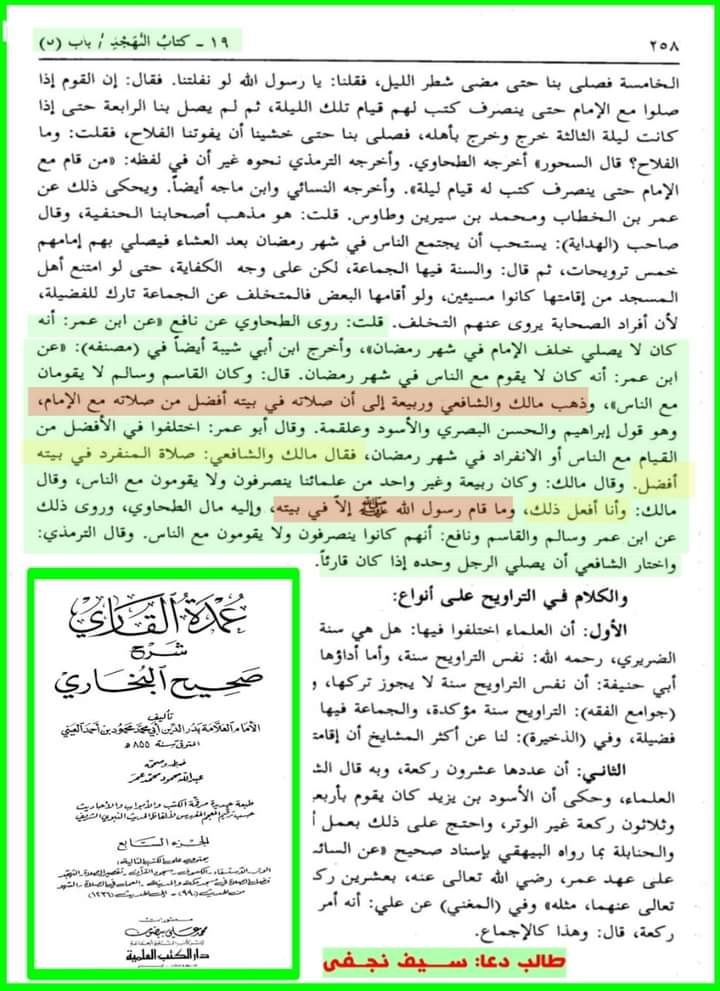 ٢٥٨
١٩ - كتابُ التَّهَجُّدِ / باب (٥)
الخامسة فصلى بنا حتى مضى شطر الليل، فقلنا: يا رسول الله لو نفلتنا. فقال: إن القوم إذا
صلوا مع الإمام حتى ينصرف كتب لهم قيام تلك الليلة، ثم لم يصل بنا الرابعة حتى إذا
كانت ليلة الثالثة خرج وخرج بأهله، فصلى بنا حتى خشينا أن يفوتنا الفلاح، فقلت: وما
الفلاح؟ قال السحور» أخرجه الطحاوي. وأخرجه الترمذي نحوه غير أن في لفظه: «من قام مع
الإمام حتى ينصرف كتب له قيام ليلة». وأخرجه النسائي وابن ماجه أيضاً. ويحكى ذلك عن
عمر بن الخطاب ومحمد بن سيرين وطاوس. قلت: هو مذهب أصحابنا الحنفية، وقال
صاحب (الهداية): يستحب أن يجتمع الناس في شهر رمضان بعد العشاء فيصلي بهم إمامهم
خمس ترويحات، ثم قال: والسنة فيها الجماعة، لكن على وجه الكفاية، حتى لو امتنع أهل
المسجد من إقامتها كانوا مسيئين، ولو أقامها البعض فالمتخلف عن الجماعة تارك للفضيلة،
لأن أفراد الصحابة يروى عنهم التخلف. قلت: روى الطحاوي عن نافع «عن ابن عمر: أنه
كان لا يصلي خلف الإمام في شهر رمضان»، وأخرج ابن أبي شيبة أيضاً في (مصنفه): «عن
ابن عمر: أنه كان لا يقوم مع الناس في شهر رمضان. قال: وكان القاسم وسالم لا يقومان
مع الناس»، وذهب مالك والشافعي وربيعة إلى أن صلاته في بيته أفضل من صلاته مع الإمام،
وهو قول إبراهيم والحسن البصري والأسود وعلقمة. وقال أبو عمر: اختلفوا في الأفضل من
القيام مع الناس أو الانفراد في شهر رمضان، فقال مالك والشافعي: صلاة المنفرد في بيته
أفضل. وقال مالك: وكان ربيعة وغير واحد من علمائنا ينصرفون ولا يقومون مع الناس، وقال
مالك: وأنا أفعل ذلك، وما قام رسول الله ﷺ إلاّ في بيته، وإليه مال الطحاوي، وروى ذلك
عن ابن عمر وسالم والقاسم ونافع: أنهم كانوا ينصرفون ولا يقومون مع الناس. وقال الترمذي:
واختار الشافعي أن يصلي الرجل وحده إذا كان قارئاً.
والكلام في التراويح على أنواع:
الأول: أن العلماء اختلفوا فيها: هل هي سنة
الضريري، رحمه الله: نفس التراويح سنة، وأما أداؤها
أبي حنيفة: أن نفس التراويح سنة لا يجوز تركها، و
(جوامع الفقه): التراويح سنة مؤكدة، والجماعة فيها
فضيلة، وفي (الذخيرة): لنا عن أكثر المشايخ أن إقامت
الثاني: أن عددها عشرون ركعة، وبه قال الش
العلماء، وحكى أن الأسود بن يزيد كان يقوم بأربع
وثلاثون ركعة غير الوتر، واحتج على ذلك بعمل أ
والحنابلة بما رواه البيهقي بإسناد صحيح «عن السائ
على عهد عمر، رضي الله تعالى عنه، بعشرين رك
تعالى عنهما، مثله» وفي (المغني) عن علي: أنه أمر
ركعة، قال: وهذا كالإجماع.
عُمْدَةُ القَارِي
شَرْحُ
صَحِيحِ البُخَارِي
تأليف
الإمام العلامة بدر الدين أبي محمد محمود بن أحمد العيني
المتوفى سنة ٨٥٥ هـ
ضبطه وصححه
عبد الله محمود محمد عمر
طبعة جديدة مرقمة الكتب والأبواب والأحاديث
حسب ترقيم المعجم المفهرس لألفاظ الحديث النبوي الشريف
الجزء السابع
يحتوي على الكتب التالية:
منشورات
محمد علي بيضون
دار الكتب العلمية
طالب دعا: سيف نجفى